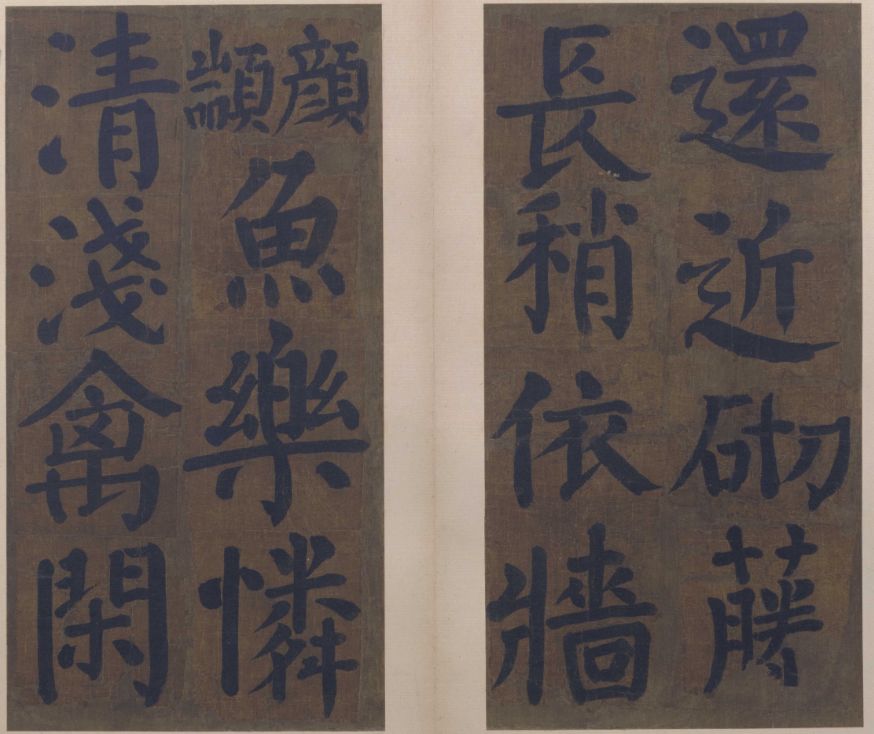 還近砌藤
長稍依牆
顏顓魚樂憐
清淺禽閑